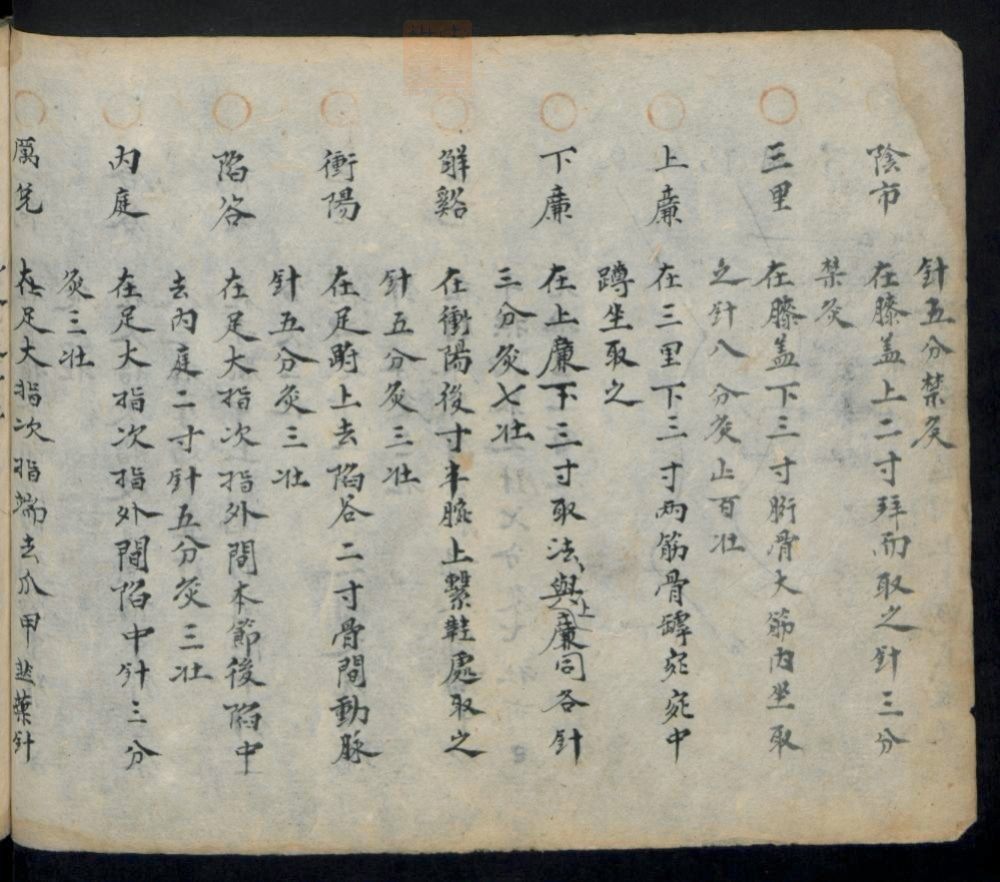 針五分禁灸
陰市 在膝盖上二寸拜而取之針三分
禁灸
三里 在膝盖下三寸胻骨大筋内坐取
之針八分灸止百壮
上廉 在三里下三寸两筋骨罅宛宛中
蹲坐取之
下廉 在上廉下三寸取法與上廉同各針
三分灸七壮
觧谿 在衝陽後寸半腕上繫鞋處取之
針五分灸三壮
衝陽 在足跗上去陷谷二寸骨間動脉
針五分灸三壮
陷谷 在足大指次指外間本節後陷中
去内庭二寸針五分灸三壮
内庭 在足大指次指外間陷中針三分
灸三壮
厲兑 在足大指次指端去爪甲韮葉針